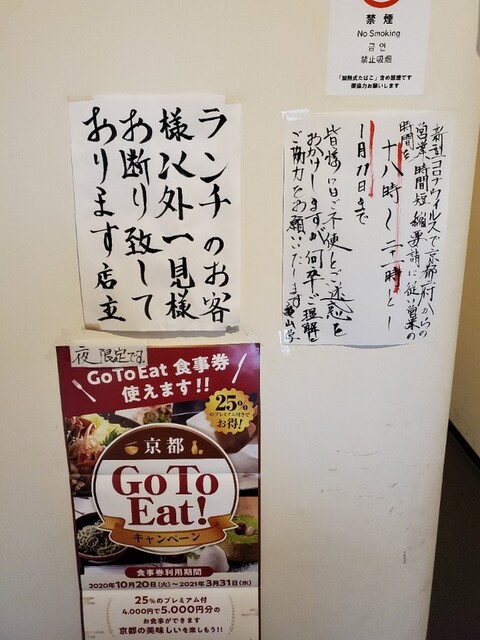 禁煙
No Smoking
금연
禁止吸烟
「加熱式たばこ」含め禁煙です
御協力お願いします
ランチのお客
様以外一見様
お断り致して
おります 店主
新型コロナウイルスで京都府からの
営業時間短縮要請に従い営業の
時間を
十八時〜二十一時とし
1月11日まで
皆様にはご不便とご迷惑を
おかけしますが何卒ご理解と
ご協力をお願いいたします
夜限定です。
GoToEat 食事券
使えます!!
25%
のプレミアム付きで
お得!
京都
Go To
Eat!
キャンペーン
食事券利用期間
2020年10月20日(火)〜2021年3月31日(水)
25%のプレミアム付
4,000円で5,000円分の
お食事ができます
京都の美味しいを楽しもう!!